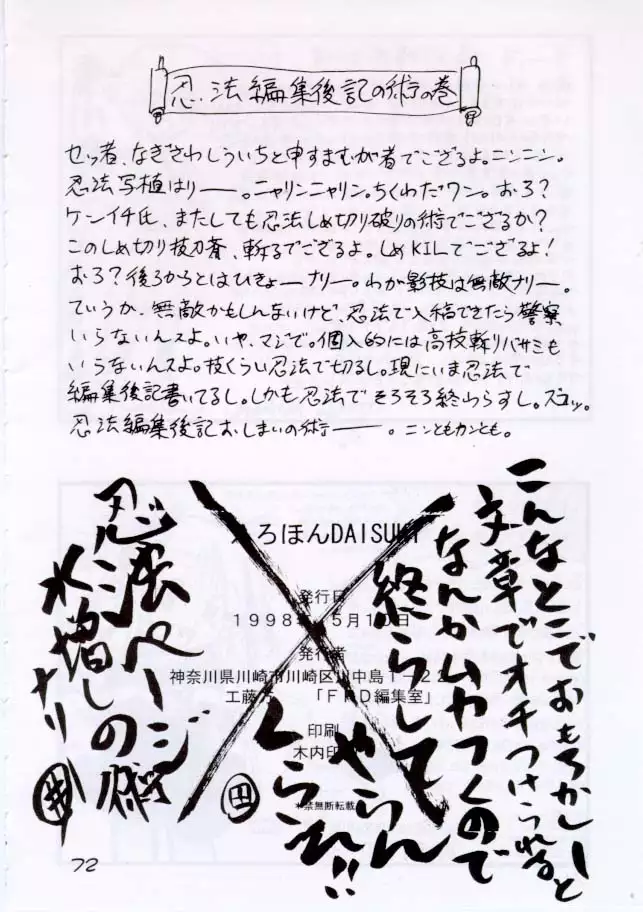 忍法編集後記の術の巻
セッ者、なぎさわしういちと申すまむが者でござるよ。ニンニン。
忍法写植はりー――。ニャリンニャリン。ちくわだワン。おろ？
ケンイチ氏、またしても忍法しめ切り破りの術でござるか？
このしめ切り抜刀斎、斬るでござるよ。しめKILLでござるよ！
おろ？後ろからとはひきょーナリー。わが影技は無敵ナリー。
ていうか、無敵かもしんまいけど、忍法で入稿できたら警察
いらないんスよ。いや、マジで。個人的には高枝斬りバサミも
いらないんスよ。枝くらい忍法で切るし。現にいま忍法で
編集後記書いてるし。しかも忍法でそろそろ終わらすし。ズコッ。
忍法編集後記おしまいの術――。ニンともカンとも。
こんなとこでおもちかしーと
文章でオチつけられると
なんかムカつくので
終らして
やらん
くらえ!!
田
忍法ページ
水増しの術
ナリ
井
えろほんDAISUKI
発行日
1998年 5月10日
発行者
神奈川県川崎市川崎区川中島1-22
工藤 「FKD編集室」
印刷
木内印
*禁無断転載
72